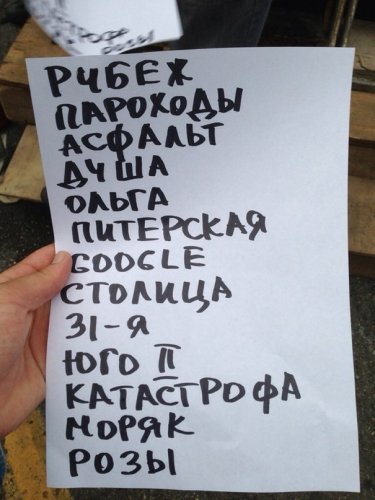 КАТАСТРОФА
РОЗЫ
РУБЕЖ
ПАРОХОДЫ
АСФАЛЬТ
ДУША
ОЛЬГА
ПИТЕРСКАЯ
GOOGLE
СТОЛИЦА
31-Я
ЮГО II
КАТАСТРОФА
МОРЯК
РОЗЫ